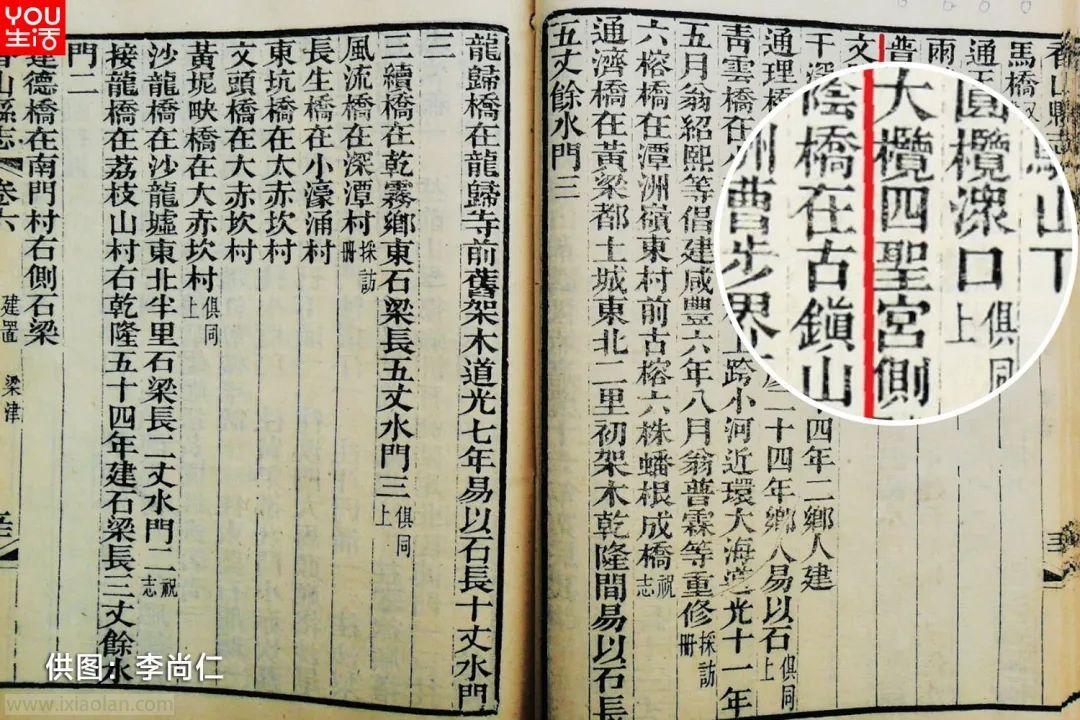 YOU
生活
香山縣志
馬橋
山下
圓欖滘口俱同上
雨
普
大欖四聖宮側
文
陰橋在古鎮山
干深
洲曹步界
四年二鄉人建
通理橋
二十四年鄉人易以石俱同上
青雲橋在
上跨小河近環大海道光十一年
五月翁紹熙等倡建咸豐六年八月翁普霖等重修採訪冊
六榕橋在潭洲嶺東村前古榕六株蟠根成橋祝志
通濟橋在黃梁都土城東北二里初架木乾隆間易以石長
五丈餘水門三
龍歸橋在龍歸寺前舊架木道光七年易以石長十丈水門
三
三續橋在乾霧鄉東石梁長五丈水門三俱同上
風流橋在深潭村採訪冊
長生橋在小濠涌村
東坑橋在太赤坎村
文頭橋在大赤坎村
黃坭䟴橋在大赤坎村俱同上
沙龍橋在沙龍墟東北半里石梁長二丈水門二祝志
接龍橋在荔枝山村右乾隆五十四年建石梁長三丈餘水
門二
達德橋在南門村右側石梁
香山縣志
卷六
建置
梁津
供图：李尚仁
www.ixiaolan.com